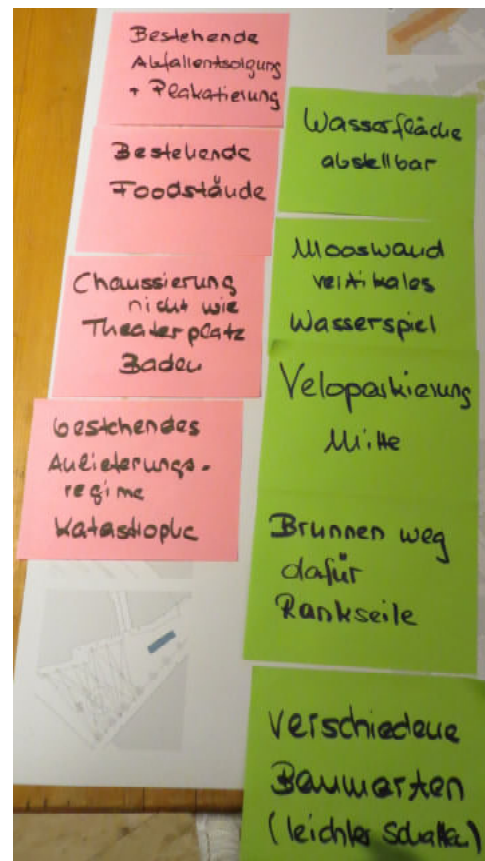 Bestehende
Abfallentsolgung
+ Plakatierung
Bestehende
Foodstände
Chaussierung
nicht wie
Theaterplatz
Baden
bestehendes
Anlieferungs-
regime
Katastrophe
Wasserfläche
abstellbar
Mooswand
vertikales
Wasserspiel
Veloparkierung
Mitte
Brunnen weg
dafür
Rankseile
verschiedene
Baumarten
(leichter Schatten)